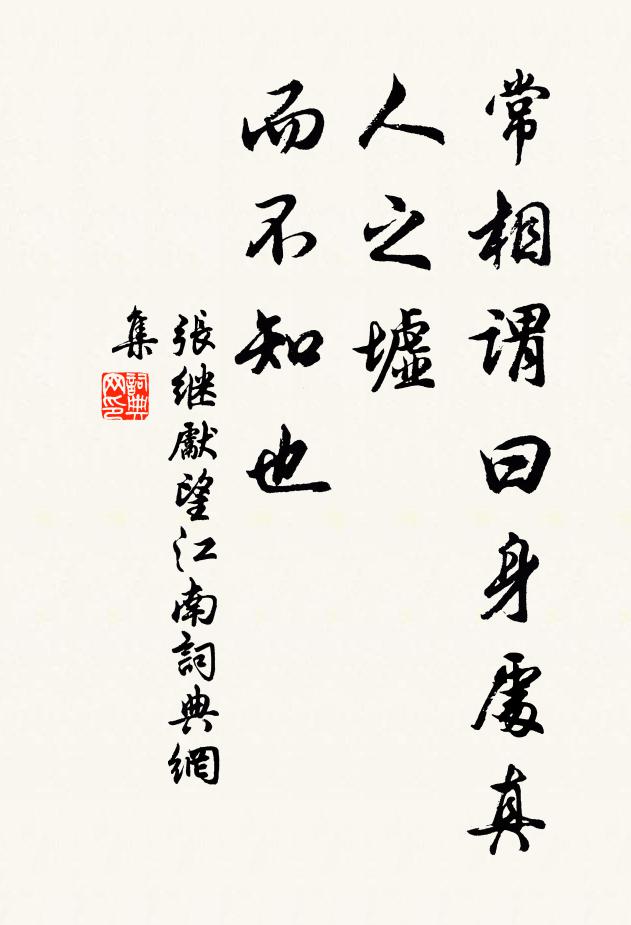 常相謂曰身處真
人之墟
而不知也
張継獻望江南詞典網
集
詞典
网印